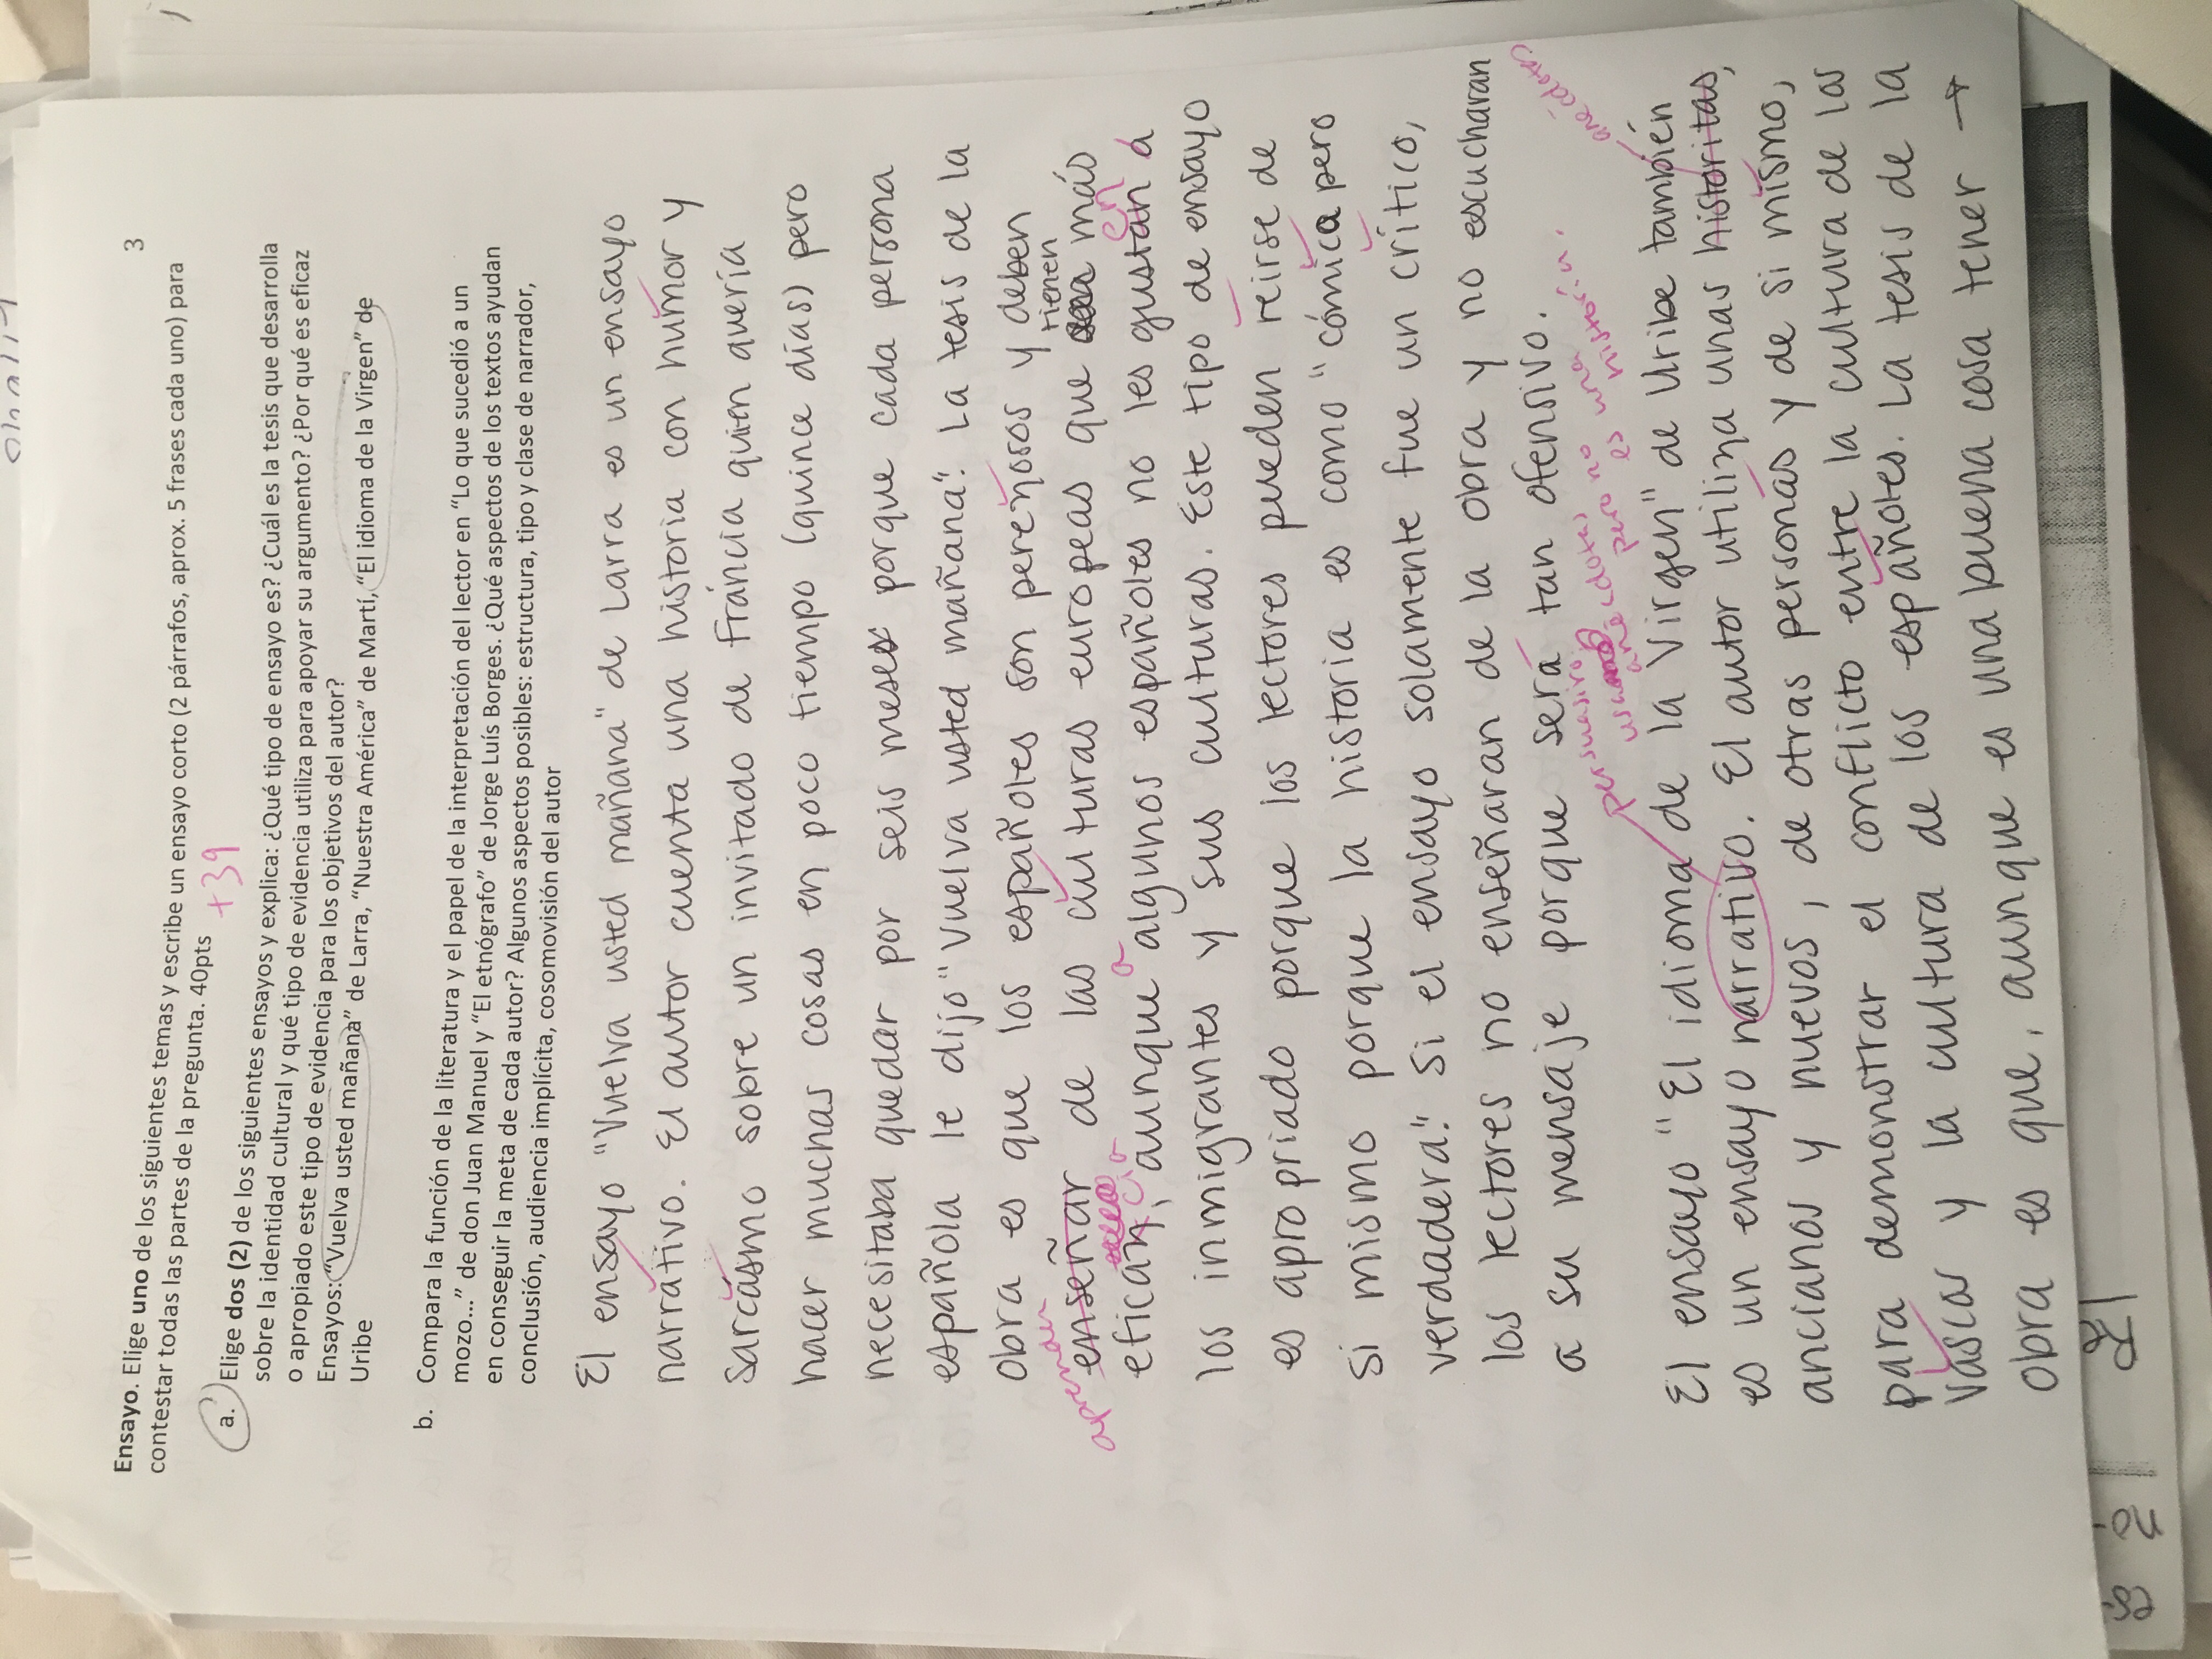 3
Ensayo. Elige uno de los siguientes temas y escribe un ensayo corto (2 párrafos, aprox. 5 frases cada uno) para
contestar todas las partes de la pregunta. 40pts
+39
a. Elige dos (2) de los siguientes ensayos y explica: ¿Qué tipo de ensayo es? ¿Cuál es la tesis que desarrolla
sobre la identidad cultural y qué tipo de evidencia utiliza para apoyar su argumento? ¿Por qué es eficaz
o apropiado este tipo de evidencia para los objetivos del autor?
Ensayos: “Vuelva usted mañana” de Larra, “Nuestra América” de Martí, “El idioma de la Virgen” de
Uribe
b. Compara la función de la literatura y el papel de la interpretación del lector en “Lo que sucedió a un
mozo...” de don Juan Manuel y “El etnógrafo” de Jorge Luís Borges. ¿Qué aspectos de los textos ayudan
en conseguir la meta de cada autor? Algunos aspectos posibles: estructura, tipo y clase de narrador,
conclusión, audiencia implícita, cosomovisión del autor
El ensayo "Vuelva usted mañana" de Larra es un ensayo
narrativo. El autor cuenta una historia con humor y
sarcásmo sobre un invitado de Francia quien quería
hacer muchas cosas en poco tiempo (quince días) pero
necesitaba quedar por seis meses porque cada persona
española le dijo "Vuelva usted mañana". La tesis de la
obra es que los españoles son pereñosos y deben
aprender
tienen
enseñar de las culturas europeas que más
cia a en
efican, aunque algunos españoles no les gustan a
los inmigrantes y sus culturas. Este tipo de ensayo
es apropriado porque los lectores pueden reirse de
si mismo porque la historia es como "cómica pero
verdadera." Si el ensayo solamente fue un crítico,
los lectores no enseñaran de la obra y no escucharan
a su mensaje porque será tan ofensivo.
persuasivo.
usa anécdotas
pero no
es una
historia.
anécdotas
El ensayo "El idioma de la Virgen" de Uribe también
es un ensayo narrativo. El autor utiliza unas historitas,
ancianos y nuevos, de otras personas y de si mismo,
para demonstrar el conflicto entre la cultura de los
vascos y la cultura de los españoles. La tesis de la
obra es que, aunque es una buena cosa tener →
es-
no-
Re